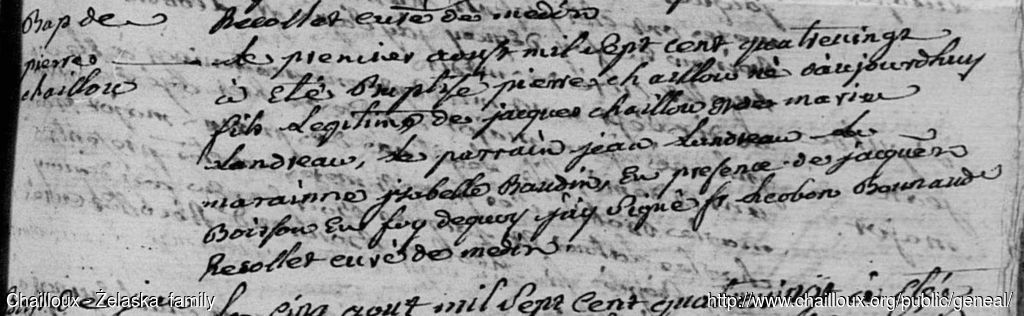 Bap de Recollet curé de medin
pierre le premier aoust mil sept cent quatrevingt
chaillou à été Baptisé pierre chaillou né d'aujourdhuy
fils Legitime de jacques chaillou et de marie
Landreau, le parrain jean Landreau la
marainne jzabelle Baudin, En presence de jacques
Boisson En foy dequoy j'ay signé fr Bonnaud
Recollet curé de medin
le cinq aout mil sept cent quatrevingt à été
Chailloux -Żelaska family
http://www.chailloux.org/public/geneal/